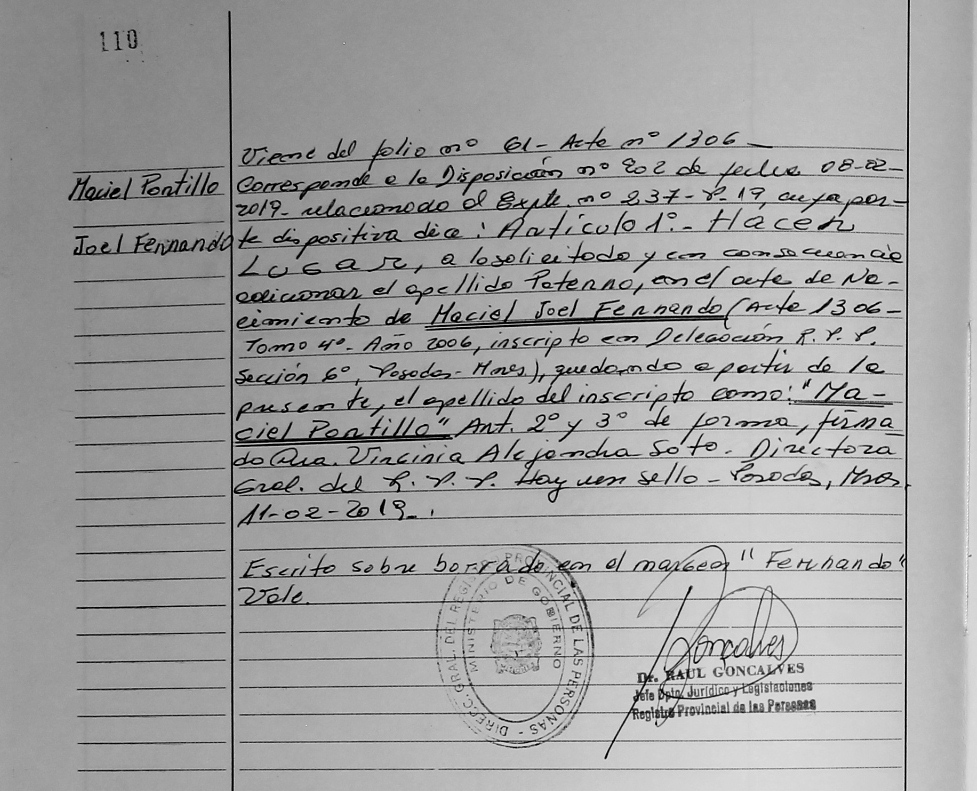 110
Maciel Portillo
Joel Fernando
Viene del folio nº 61- Acta nº 1306 -
Corresponde a la Disposición nº 202 de fecha 08-02-
2019- relacionado al Expte. nº 237-P-19, cuya par-
te dispositiva dice: Artículo 1º.- Hacer
Lugar, a lo solicitado y en consecuencia
adicionar el apellido Paterno, en el acta de Na-
cimiento de Maciel Joel Fernando (Acta 1306-
Tomo 4º- Año 2006, inscripto en Delegación R. P. P.
Sección 6º, Posadas- Mnes), quedando a partir de la
presente, el apellido del inscripto como: "Ma-
ciel Portillo" Art. 2º y 3º de forma, firma-
do Dra. Virginia Alejandra Soto- Directora
Gral. del R. P. P. Hay un sello- Posadas, Mnes.
11-02-2019-.
Escrito sobre borrado en el margen "Fernando"
Vale.
DIREC. GRAL. DEL REGISTRO PROVINCIAL DE LAS PERSONAS -
MINISTERIO DE GOBIERNO
Goncalves
Dr. RAUL GONCALVES
Jefe Dpto. Jurídico y Legislaciones
Registro Provincial de las Personas